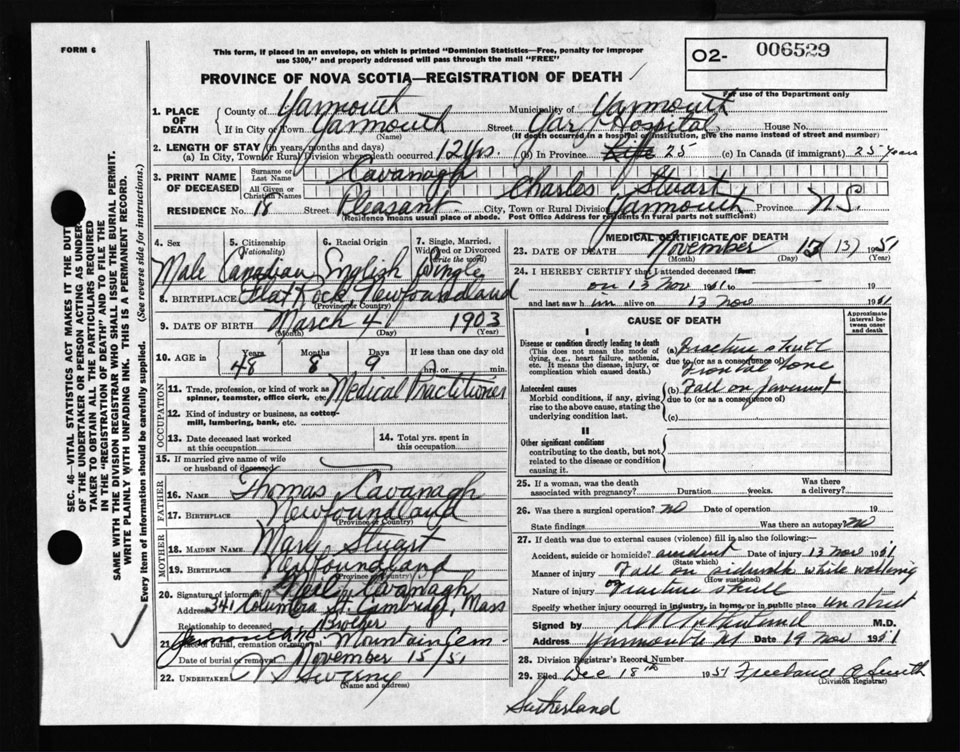 FORM 6
This form, if placed in an envelope, on which is printed "Dominion Statistics—Free, penalty for improper
use $300," and properly addressed will pass through the mail "FREE"
02- 006529
For use of the Department only
PROVINCE OF NOVA SCOTIA—REGISTRATION OF DEATH
SEC. 46—VITAL STATISTICS ACT MAKES IT THE DUTY
OF THE UNDERTAKER OR PERSON ACTING AS UNDER-
TAKER TO OBTAIN ALL THE PARTICULARS REQUIRED
IN THE "REGISTRATION OF DEATH" AND TO FILE THE
SAME WITH THE DIVISION REGISTRAR WHO SHALL ISSUE THE BURIAL PERMIT.
WRITE PLAINLY WITH UNFADING INK. THIS IS A PERMANENT RECORD.
Every item of information should be carefully supplied. (See reverse side for instructions.)
1. PLACE OF DEATH County of Yarmouth Municipality of Yarmouth
If in City or Town Yarmouth Street Yar. Hospital House No.
(Name) (If death occurred in a hospital or institution, give the name instead of street and number)
2. LENGTH OF STAY (in years, months and days)
(a) In City, Town or Rural Division where death occurred 12 yrs. (b) In Province Life 25 (c) In Canada (if immigrant) 25 years
3. PRINT NAME OF DECEASED Surname or Last Name Cavanagh
All Given or Christian Names Charles Stuart
RESIDENCE No. 18 Street Pleasant City, Town or Rural Division Yarmouth Province N.S.
(Residence means usual place of abode. Post Office Address for residents in rural parts not sufficient)
4. Sex 5. Citizenship (Nationality) 6. Racial Origin 7. Single, Married, Widowed or Divorced (write the word)
Male Canadian English Single
8. BIRTHPLACE Flat Rock, Newfoundland
(Province or Country)
9. DATE OF BIRTH March 4 1903
(Month) (Day) (Year)
10. AGE in Years Months Days If less than one day old
48 8 9 hrs. or min.
11. Trade, profession, or kind of work as spinner, teamster, office clerk, etc. Medical Practitioner
12. Kind of industry or business, as cotton-mill, lumbering, bank, etc.
13. Date deceased last worked at this occupation
14. Total yrs. spent in this occupation
15. If married give name of wife or husband of deceased
FATHER
16. NAME Thomas Cavanagh
17. BIRTHPLACE Newfoundland
(Province or Country)
MOTHER
18. MAIDEN NAME Mary Stuart
19. BIRTHPLACE Newfoundland
(Province or Country)
20. Signature of informant Neil Cavanagh
Address 341 Columbia St. Cambridge, Mass
Relationship to deceased Brother
21. Place of burial, cremation or removal Mountain Cem-
Date of burial or removal November 15/51
22. UNDERTAKER Sweeny
(Name and address)
MEDICAL CERTIFICATE OF DEATH
23. DATE OF DEATH November 13 (13) 1951
(Month) (Day)
24. I HEREBY CERTIFY that I attended deceased from
on 13 Nov 1951 to 19
and last saw him alive on 13 Nov 1951
CAUSE OF DEATH
Approximate interval between onset and death
I
Disease or condition directly leading to death
(This does not mean the mode of dying, e.g., heart failure, asthenia, etc. It means the disease, injury, or complication which caused death.)
(a) Fracture skull
due to (or as a consequence of)
frontal bone
Antecedent causes
Morbid conditions, if any, giving rise to the above cause, stating the underlying condition last.
(b) Fall on pavement
due to (or as a consequence of)
(c)
II
Other significant conditions contributing to the death, but not related to the disease or condition causing it.
25. If a woman, was the death associated with pregnancy? Duration weeks. Was there a delivery?
26. Was there a surgical operation? No Date of operation 19
State findings Was there an autopsy? No
27. If death was due to external causes (violence) fill in also the following:
Accident, suicide or homicide? accident Date of injury 13 Nov 1951
(State which)
Manner of injury Fall on sidewalk while walking
(How sustained)
Nature of injury Fracture skull
Specify whether injury occurred in industry, in home, or in public place on street
Signed by M.D.
Address Yarmouth NS Date 19 Nov 1951
28. Division Registrar's Record Number
29. Filed Dec 18th 1951 Freeland Smith
(Division Registrar)
Sutherland